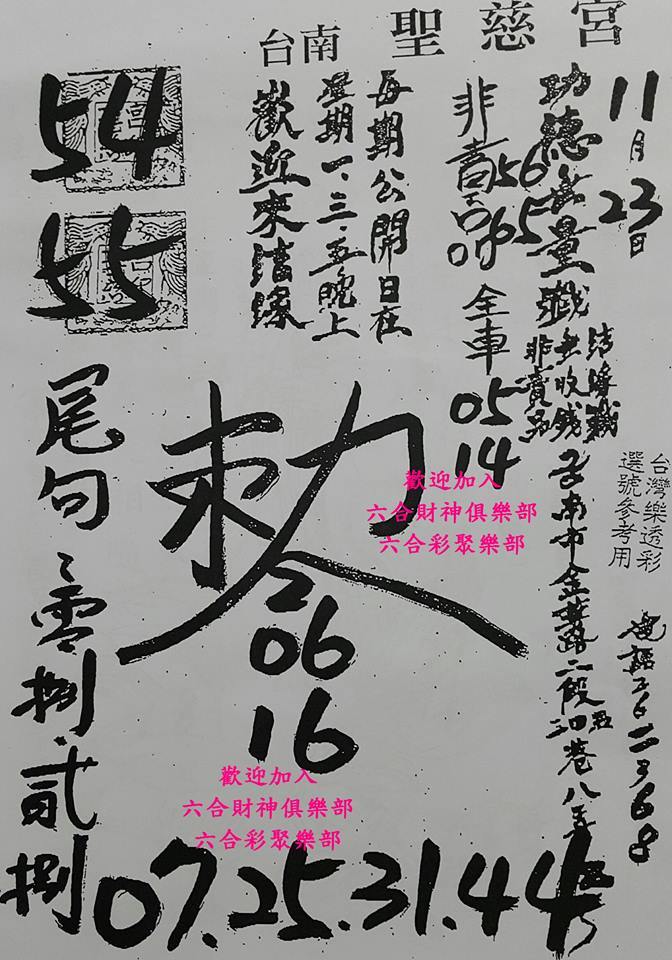 台南 聖慈宮
11月23日
功德無量
結緣
無收錢
非賣品
台南市金華路二段
巷八
電話
台灣樂透彩
選號參考用
56
65
全車
05
14
每期公開日在
星期一、三、五晚上
歡迎來結緣
54
55
敕
2
06
16
尾句
零捌.貳捌
07.25.31.44
歡迎加入
六合財神俱樂部
六合彩聚樂部
歡迎加入
六合財神俱樂部
六合彩聚樂部